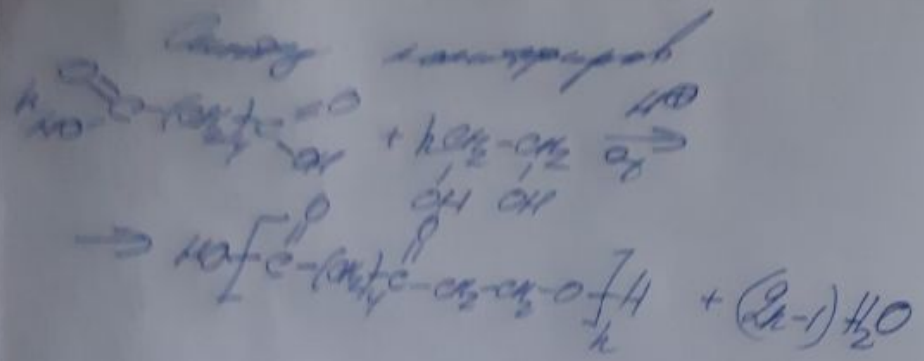 Синтез полиэфиров
n HO-C(=O)-(CH2)4-C(=O)-OH + n CH2(OH)-CH2(OH) →
→ HO-[C(=O)-(CH2)4-C(=O)-CH2-CH2-O-]n H + (2n-1) H2O